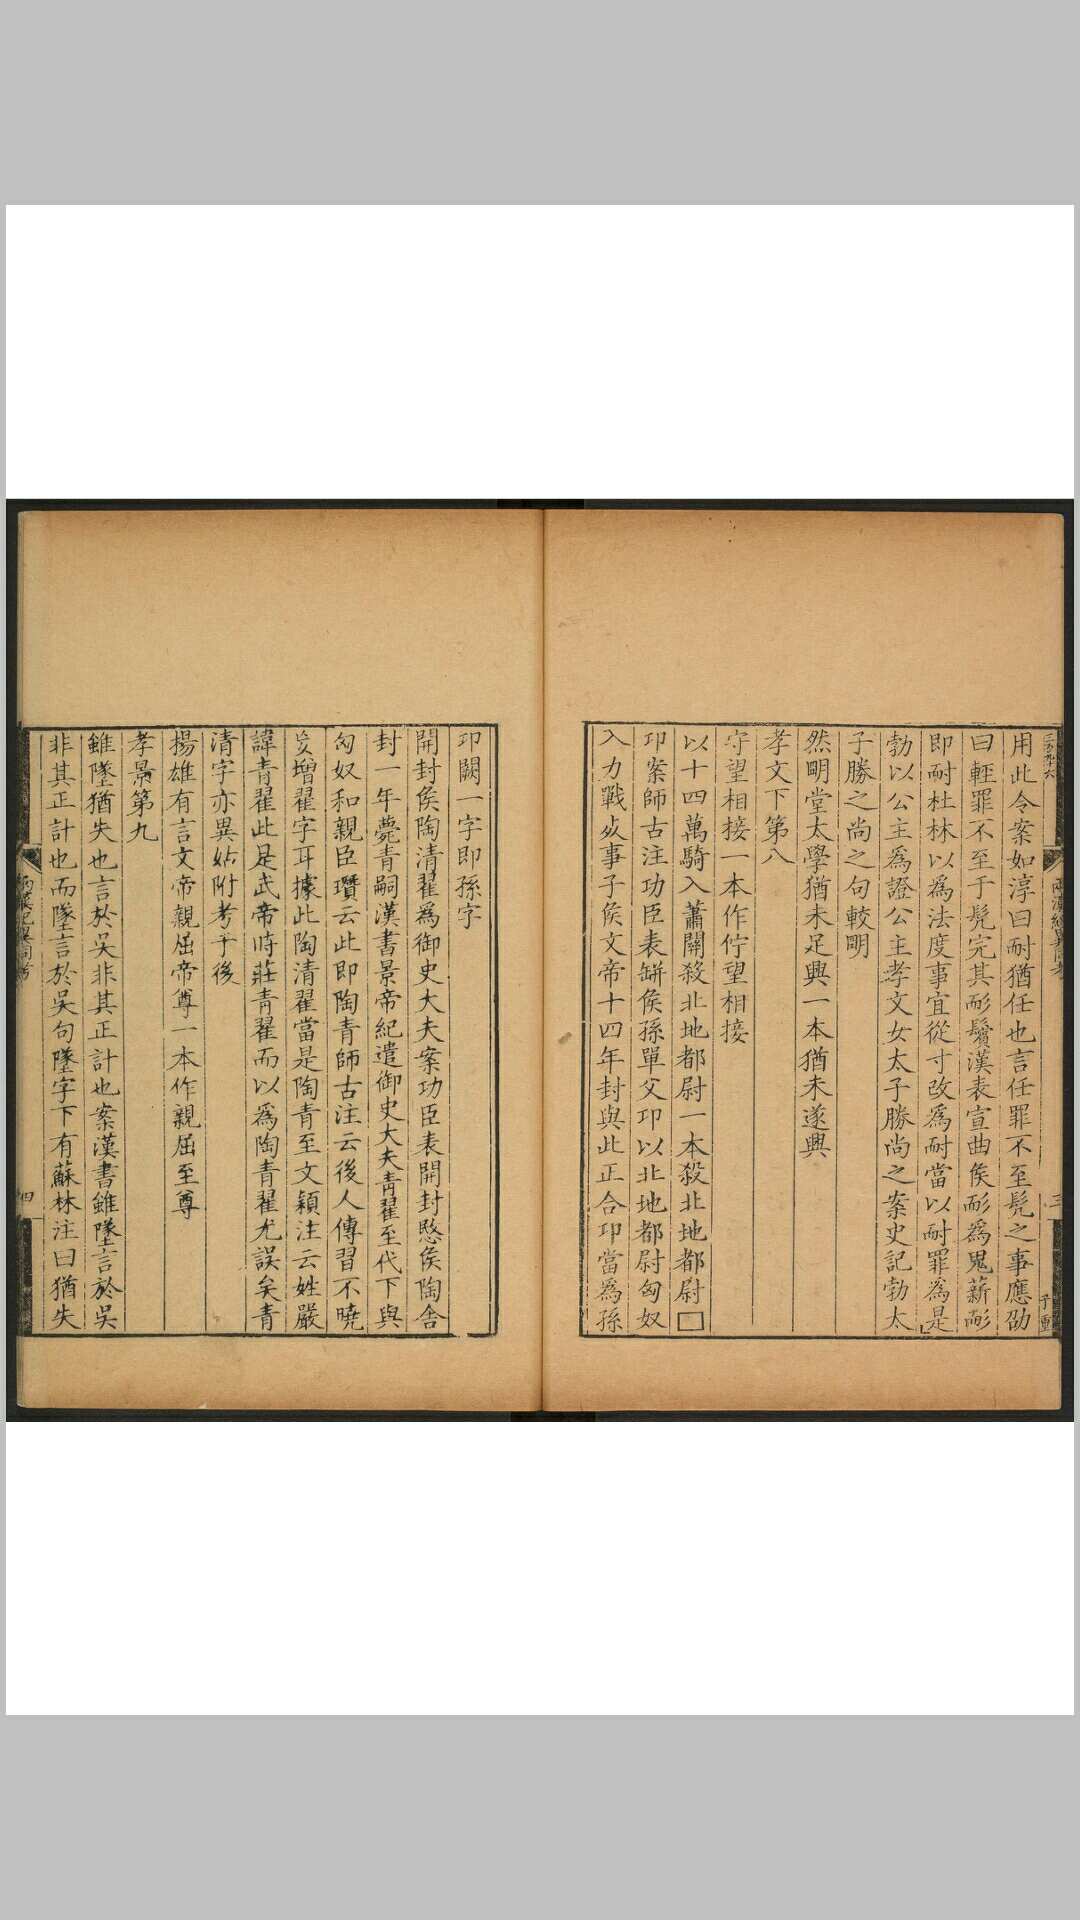 用此令案如淳曰耐猶任也言任罪不至髡之事應劭
曰輕罪不至于髡完其耏鬢漢表宣曲侯耏爲鬼薪耏
即耐杜林以爲法度事宜從寸改爲耐當以耐罪爲是
勃以公主爲證公主孝文女太子勝尚之案史記勃太
子勝之尚之句較明
然明堂太學猶未足興一本猶未遂興
孝文下第八
守望相接一本作佇望相接
以十四萬騎入蕭關殺北地都尉一本殺北地都尉□
卬案師古注功臣表缾侯孫單父卬以北地都尉匈奴
入力戰歿事子侯文帝十四年封與此正合卬當爲孫
卬闕一字即孫字
開封侯陶清翟爲御史大夫案功臣表開封愍侯陶舍
封一年薨青嗣漢書景帝紀遣御史大夫青翟至代下與
匈奴和親臣瓚云此即陶青師古注云後人傳習不曉
妄增翟字耳據此陶清翟當是陶青至文穎注云姓嚴
諱青翟此是武帝時莊青翟而以爲陶青翟尤誤矣青
清字亦異姑附考于後
揚雄有言文帝親屈帝尊一本作親屈至尊
孝景第九
雖墜猶失也言於吳非其正計也案漢書雖墜言於吳
非其正計也而墜言於吳句墜字下有蘇林注曰猶失